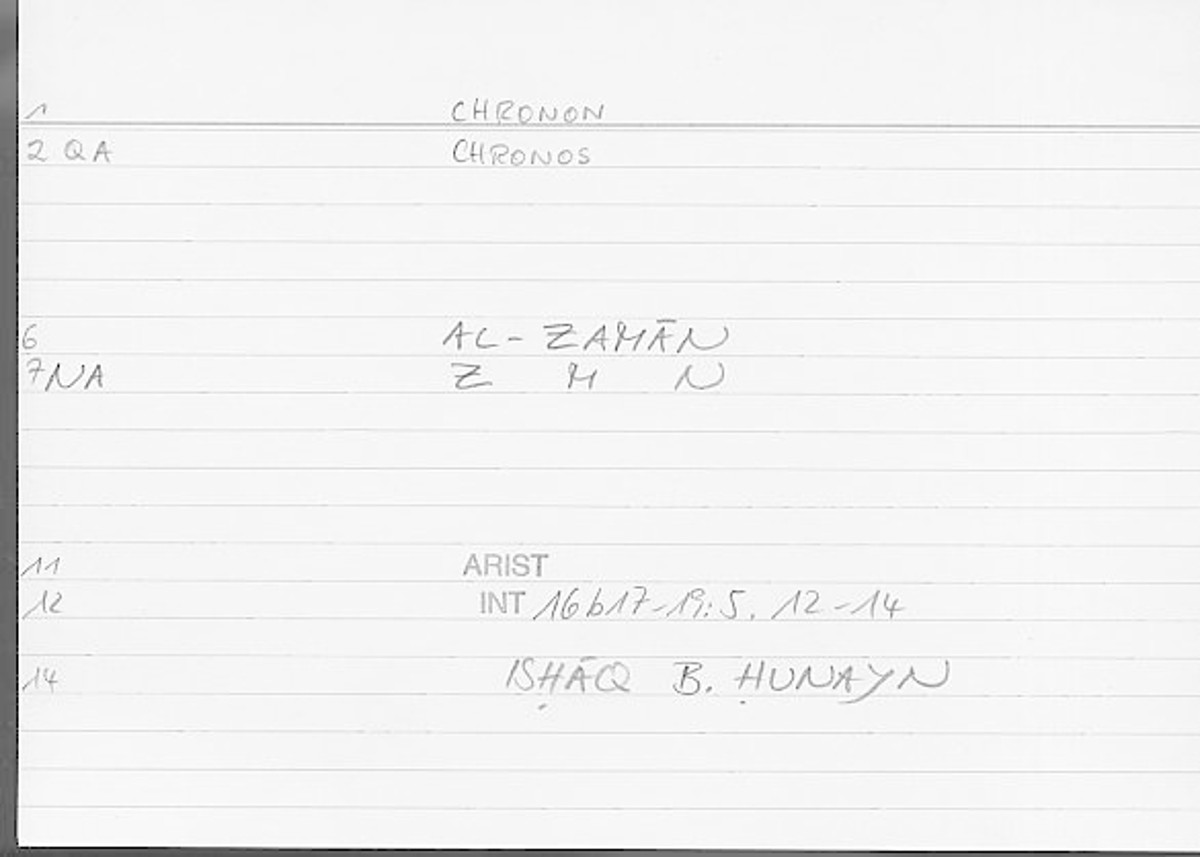 1 CHRONON
2 QA CHRONOS
6 AL-ZAMĀN
7 NA Z M N
11 ARIST
12 INT 16b17-19:5.12-14
14 ISḤĀQ B. ḤUNAYN